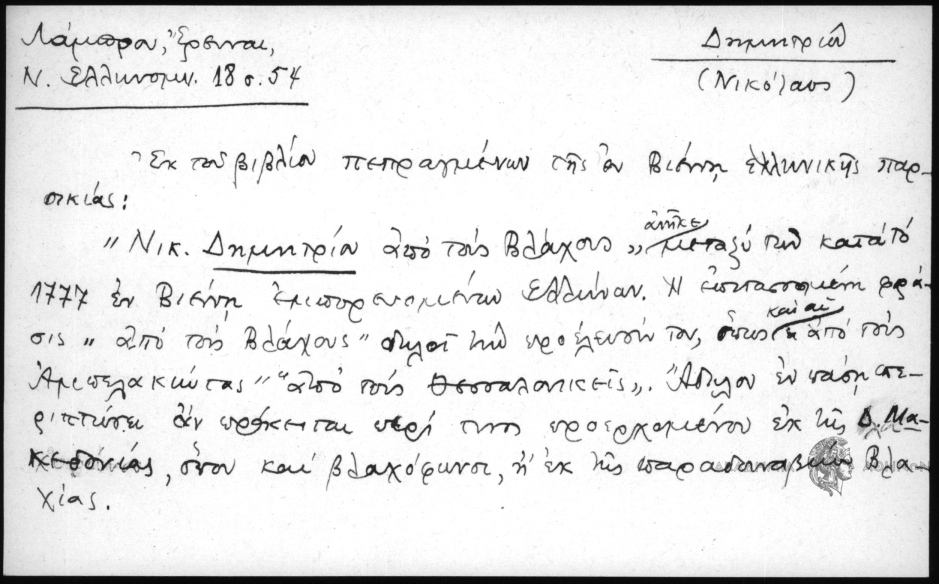 Λάμπρου, Ἔρευναι,
Ν. Ελληνομν. 18 σ. 54
Δημητρίου
(Νικόλαος)
Ἐκ τοῦ βιβλίου πεπραγμένων τῆς ἐν Βιέννῃ ἑλληνικῆς παρ-
οικίας:
"Νικ. Δημητρίου ἀπό τούς Βλάχους" ἀνῆκε μεταξύ τῶν κατά τό
1777 ἐν Βιέννῃ ἐμπορευομένων Ελλήνων. Η ἐπιτασσομένη φρά-
σις "ἀπό τούς Βλάχους" δηλοῖ τήν προέλευσίν του, ὅπως καί αἱ ἀπό τούς
Ἀμπελακιώτας" "ἀπό τούς Θεσσαλονικεῖς". Ἄδηλον ἐν πάσῃ πε-
ριπτώσει ἄν πρόκειται περί τινος προερχομένου ἐκ τῆς Δ. Μα-
κεδονίας, ὅπου καί βλαχόφωνοι, ἤ ἐκ τῆς παραδουναβίου Βλα-
χίας.